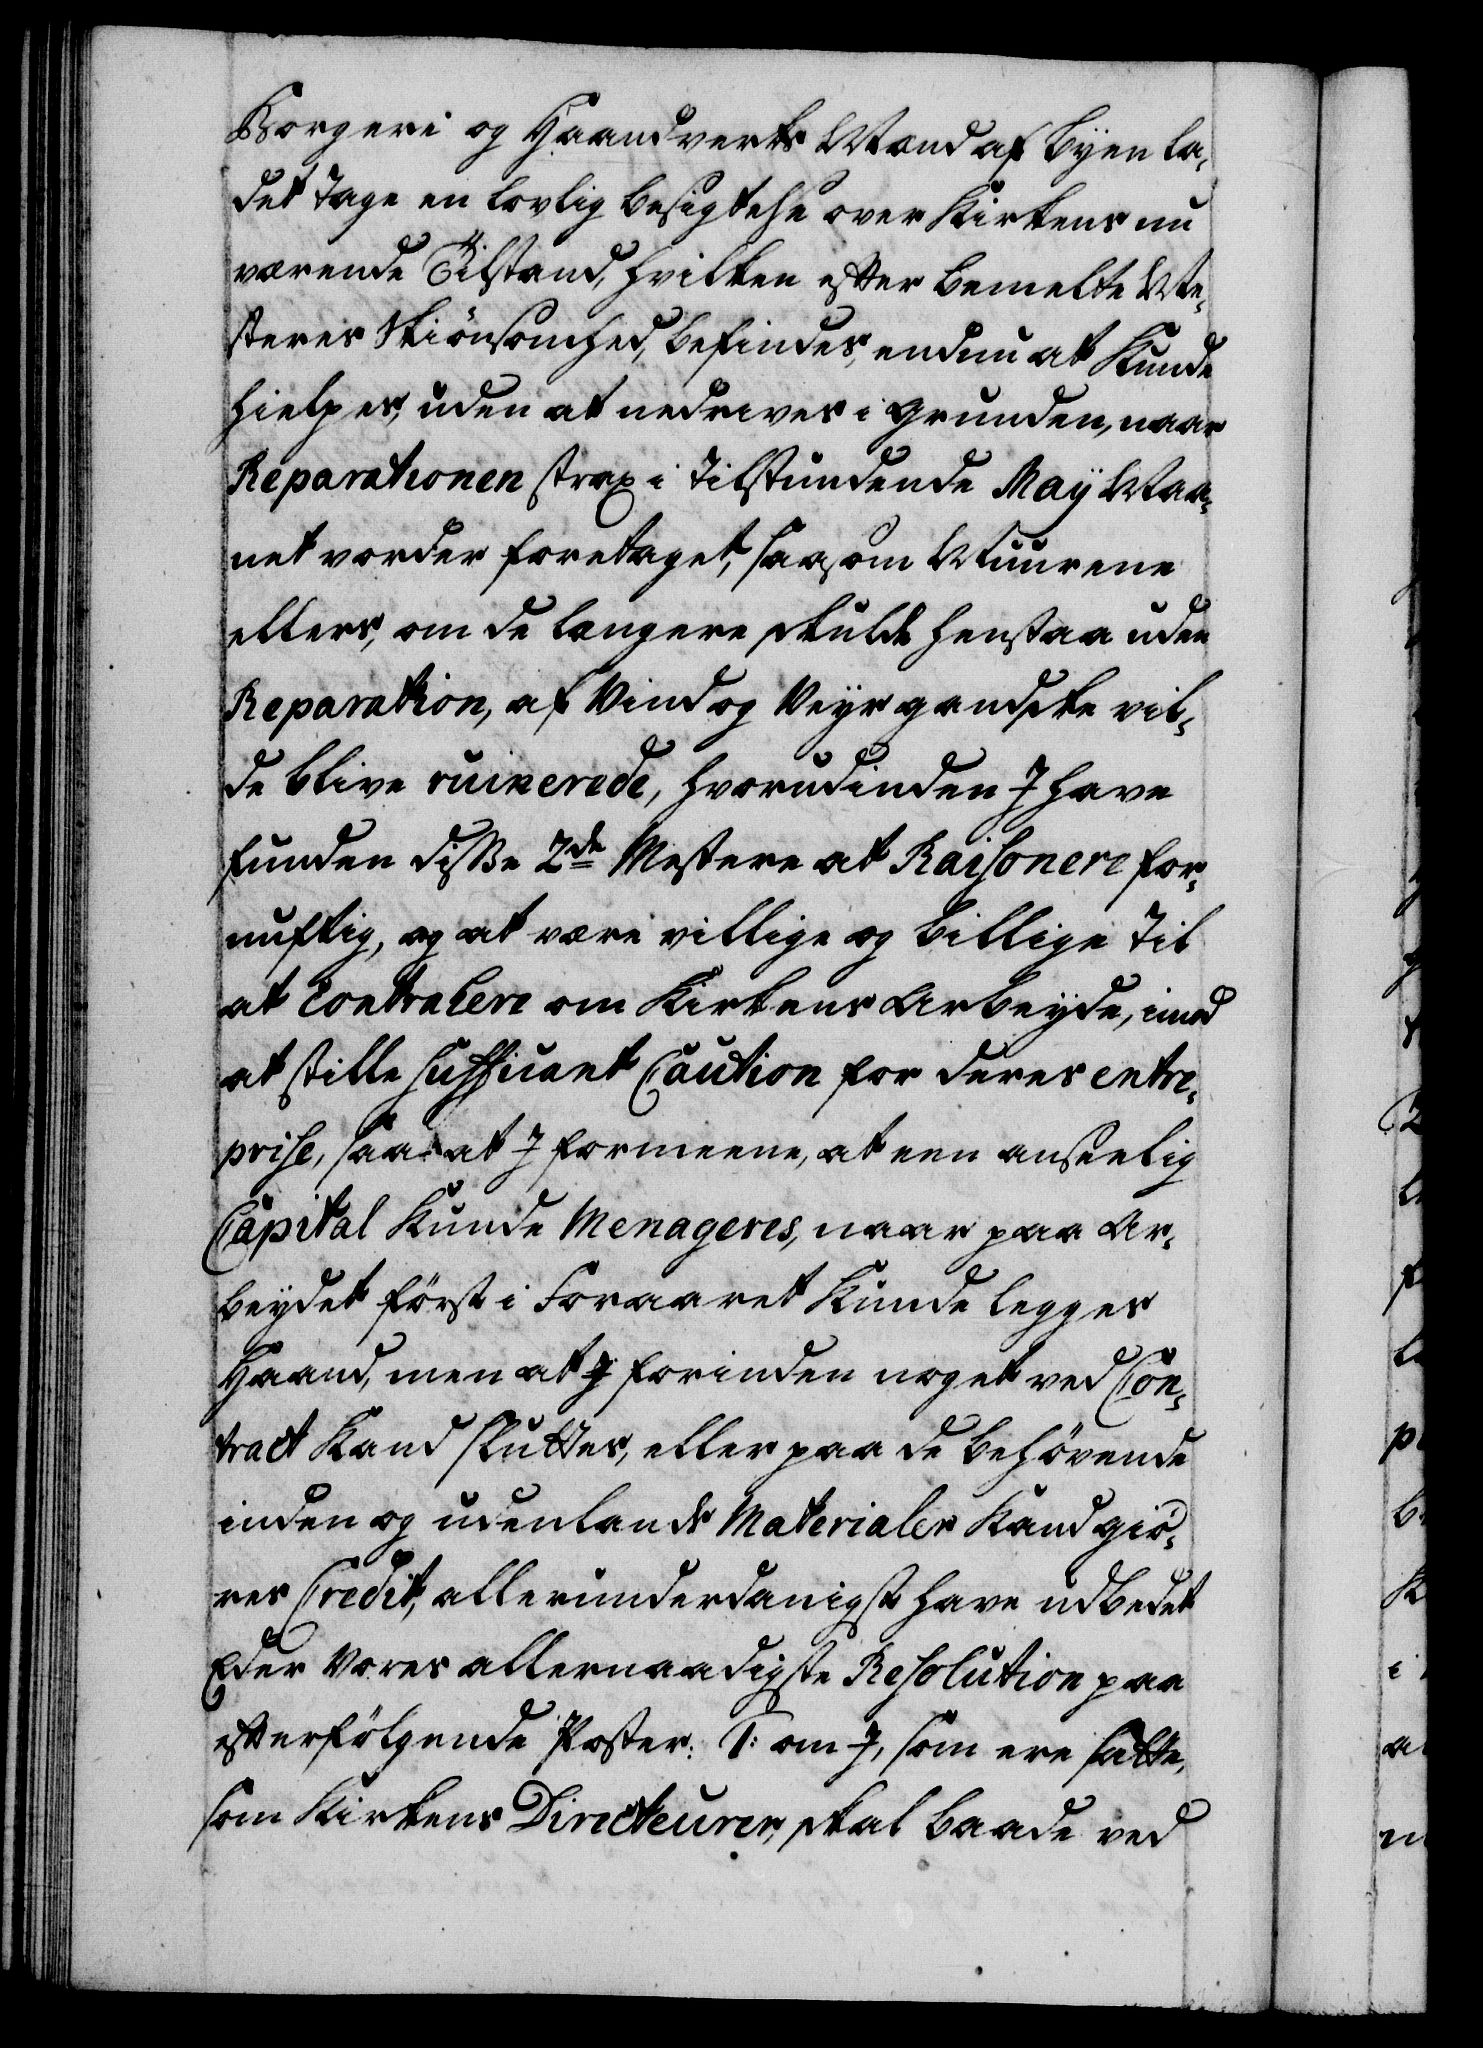 Borgeri og Haandverks Mænd af Byen la¬
det tage en lovlig besigtelse over Kirkens nu
værende Tilstand, hvilken efter bemelte Me¬
steres Skiønsomhed, befindes, endnu at kunde
hielpes, uden at nedrives i Grunden, naar
Reparationen strax i tilstundende Maji Maa¬
net vorder foretaget, saasom Muurene
ellers, om de længere skulde henstaa uden
Reparation, af Vind og Veyr gandske vil¬
de blive ruinerede, hvorudinden I have
funden disse 2de Mestere at Raisonere for¬
nuftig, og at være villige og billige til
at Contrahere om Kirkens Arbeyde, imod
at stille sufficant Caution for deres entre¬
prise, saa at I formeene, at een anseelig
Capital kunde Menageres, naar paa Ar¬
beydet først i Foraaret kunde legges
Haand, men at I forinden noget ved Con¬
tract kand sluttes, eller paa de behøvende
inden og udenlands Materialer kand giø¬
res Credit, allerunderdanigst have udbedet
Eder Vores allernaadigste Resolution paa
efterfølgende Poster: 1: om I, som ere satte,
som Kirkens Directeurer, skal baade ved